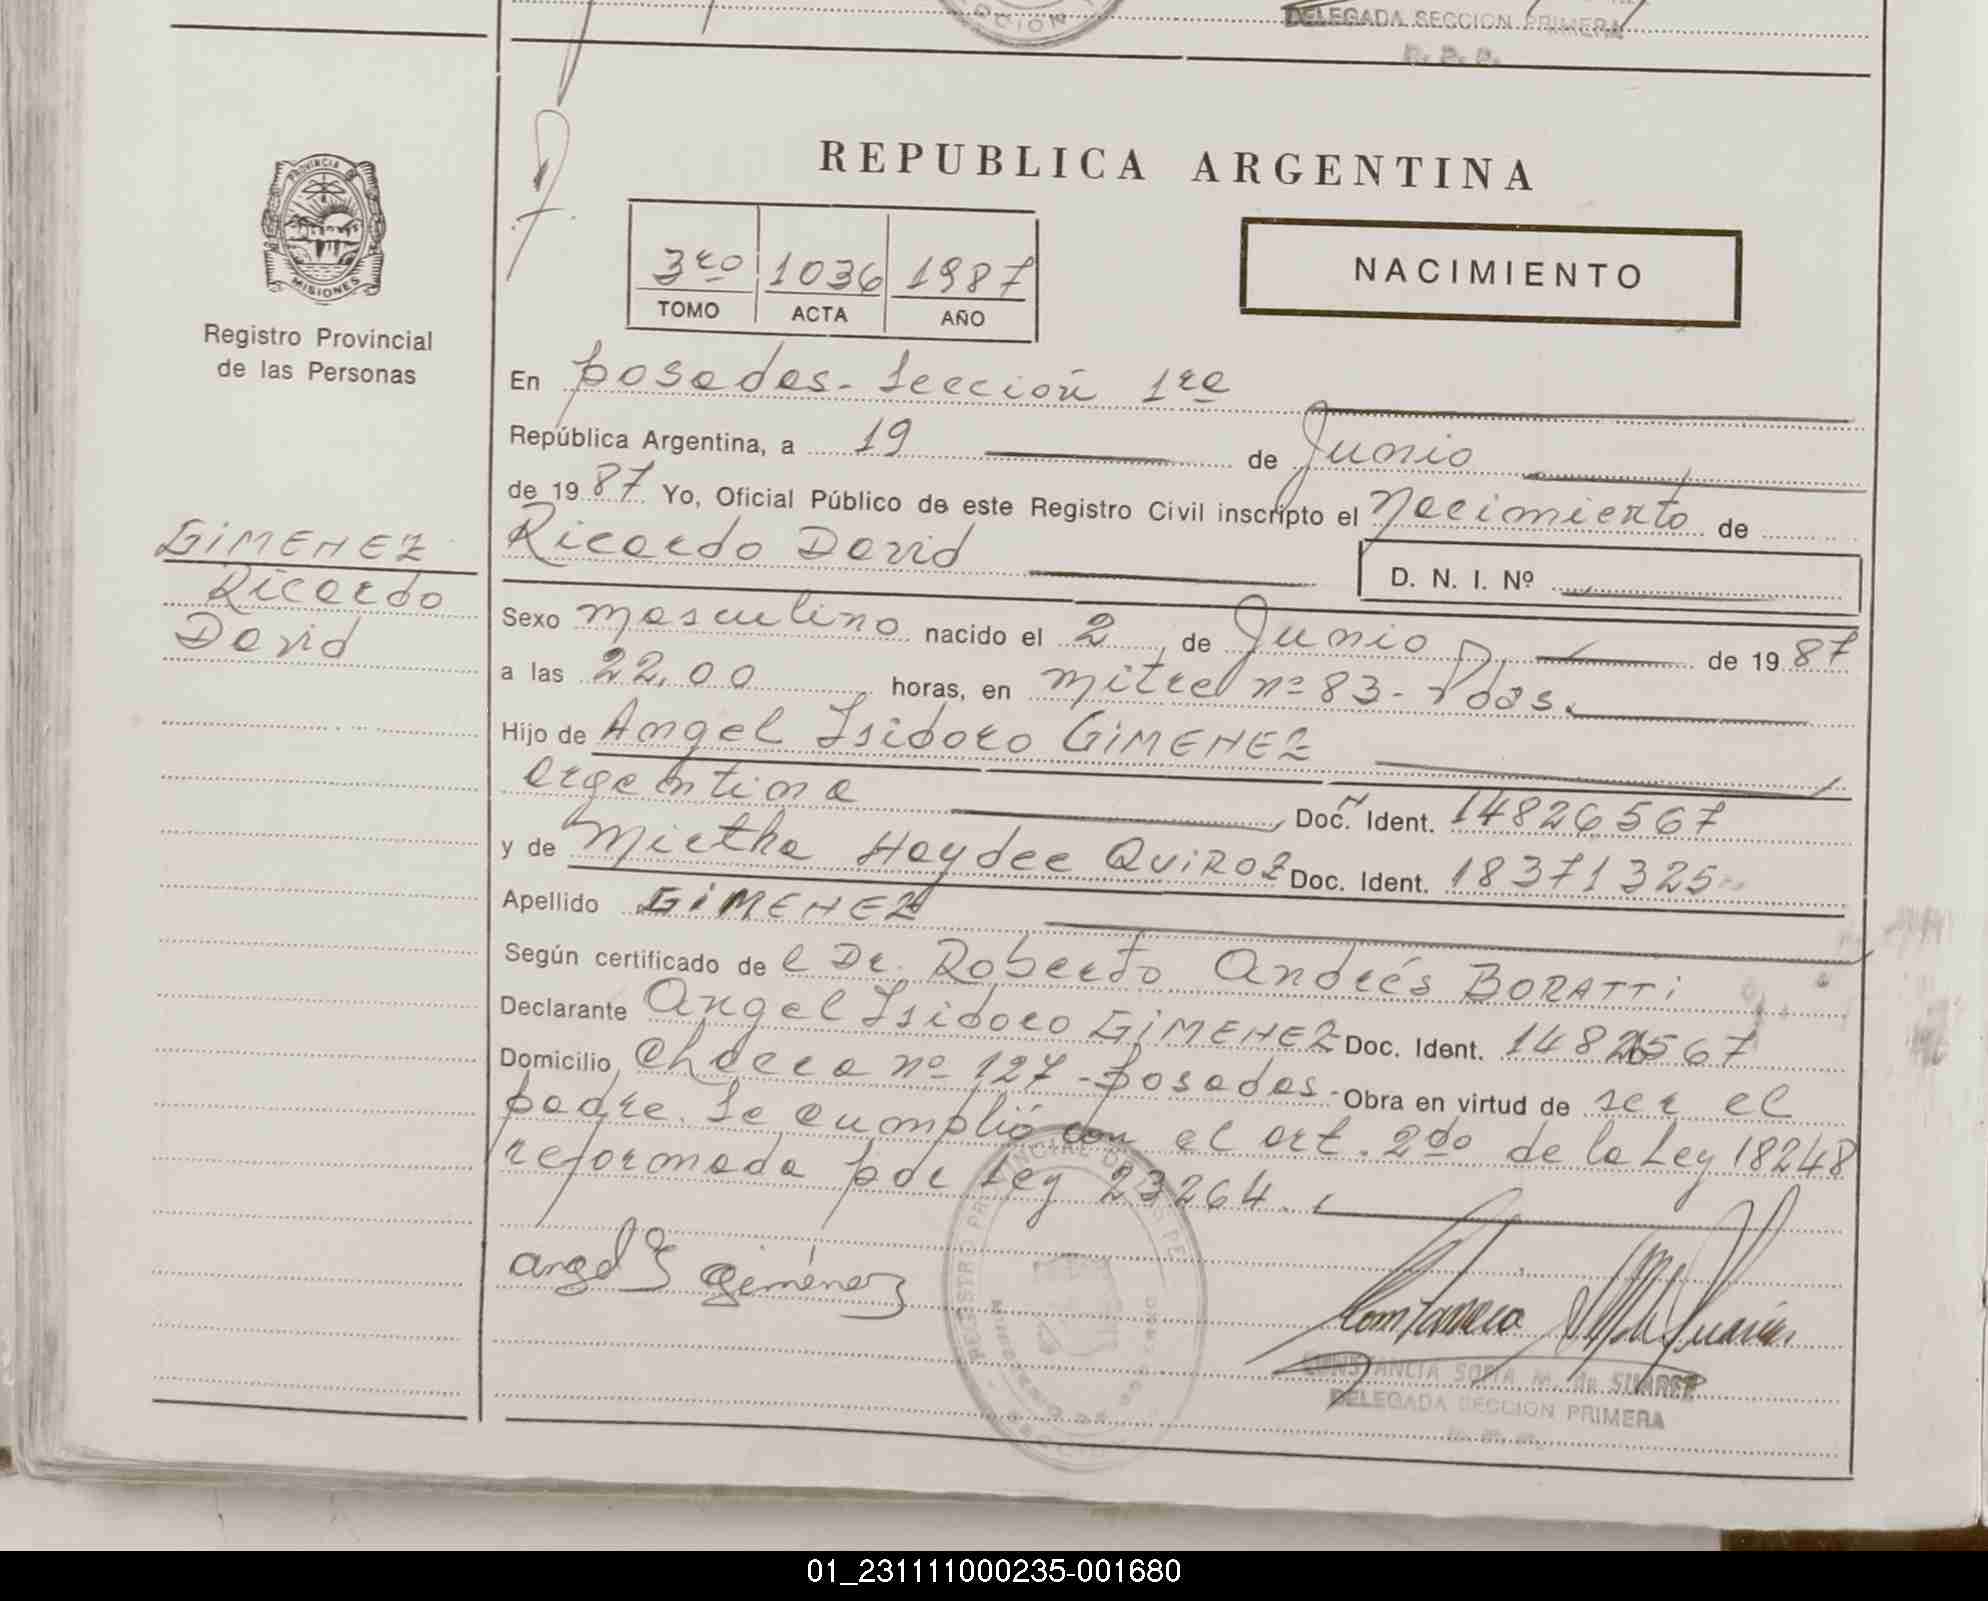 DELEGADA SECCION PRIMERA
R. P. P.
PROVINCIA DE
MISIONES
Registro Provincial
de las Personas
GIMENEZ
Ricardo
David
REPUBLICA ARGENTINA
3ro 1036 1987
TOMO ACTA AÑO
NACIMIENTO
En posadas - Sección 1ra
República Argentina, a 19 de Junio
de 1987 Yo, Oficial Público de este Registro Civil inscripto el Nacimiento de
Ricardo David
D. N. I. Nº
Sexo masculino nacido el 2 de Junio de 1987
a las 22,00 horas, en mitre nº 83 - Pdas.
Hijo de Angel Isidoro GIMENEZ
argentina Doc. Ident. 14826567
y de Mirtha Haydee QUIROZ Doc. Ident. 18371325
Apellido GIMENEZ
Según certificado de l Dr. Roberto Andrés BORATTI
Declarante Angel Isidoro GIMENEZ Doc. Ident. 14826567
Domicilio Chacra nº 127 - posadas - Obra en virtud de ser el
padre. Se cumplió con el art. 2do de la Ley 18248
reformada por Ley 23264.
Angel I Giménez
CONSTANCIA SOFIA M. de SUAREZ
DELEGADA SECCION PRIMERA
01_231111000235-001680